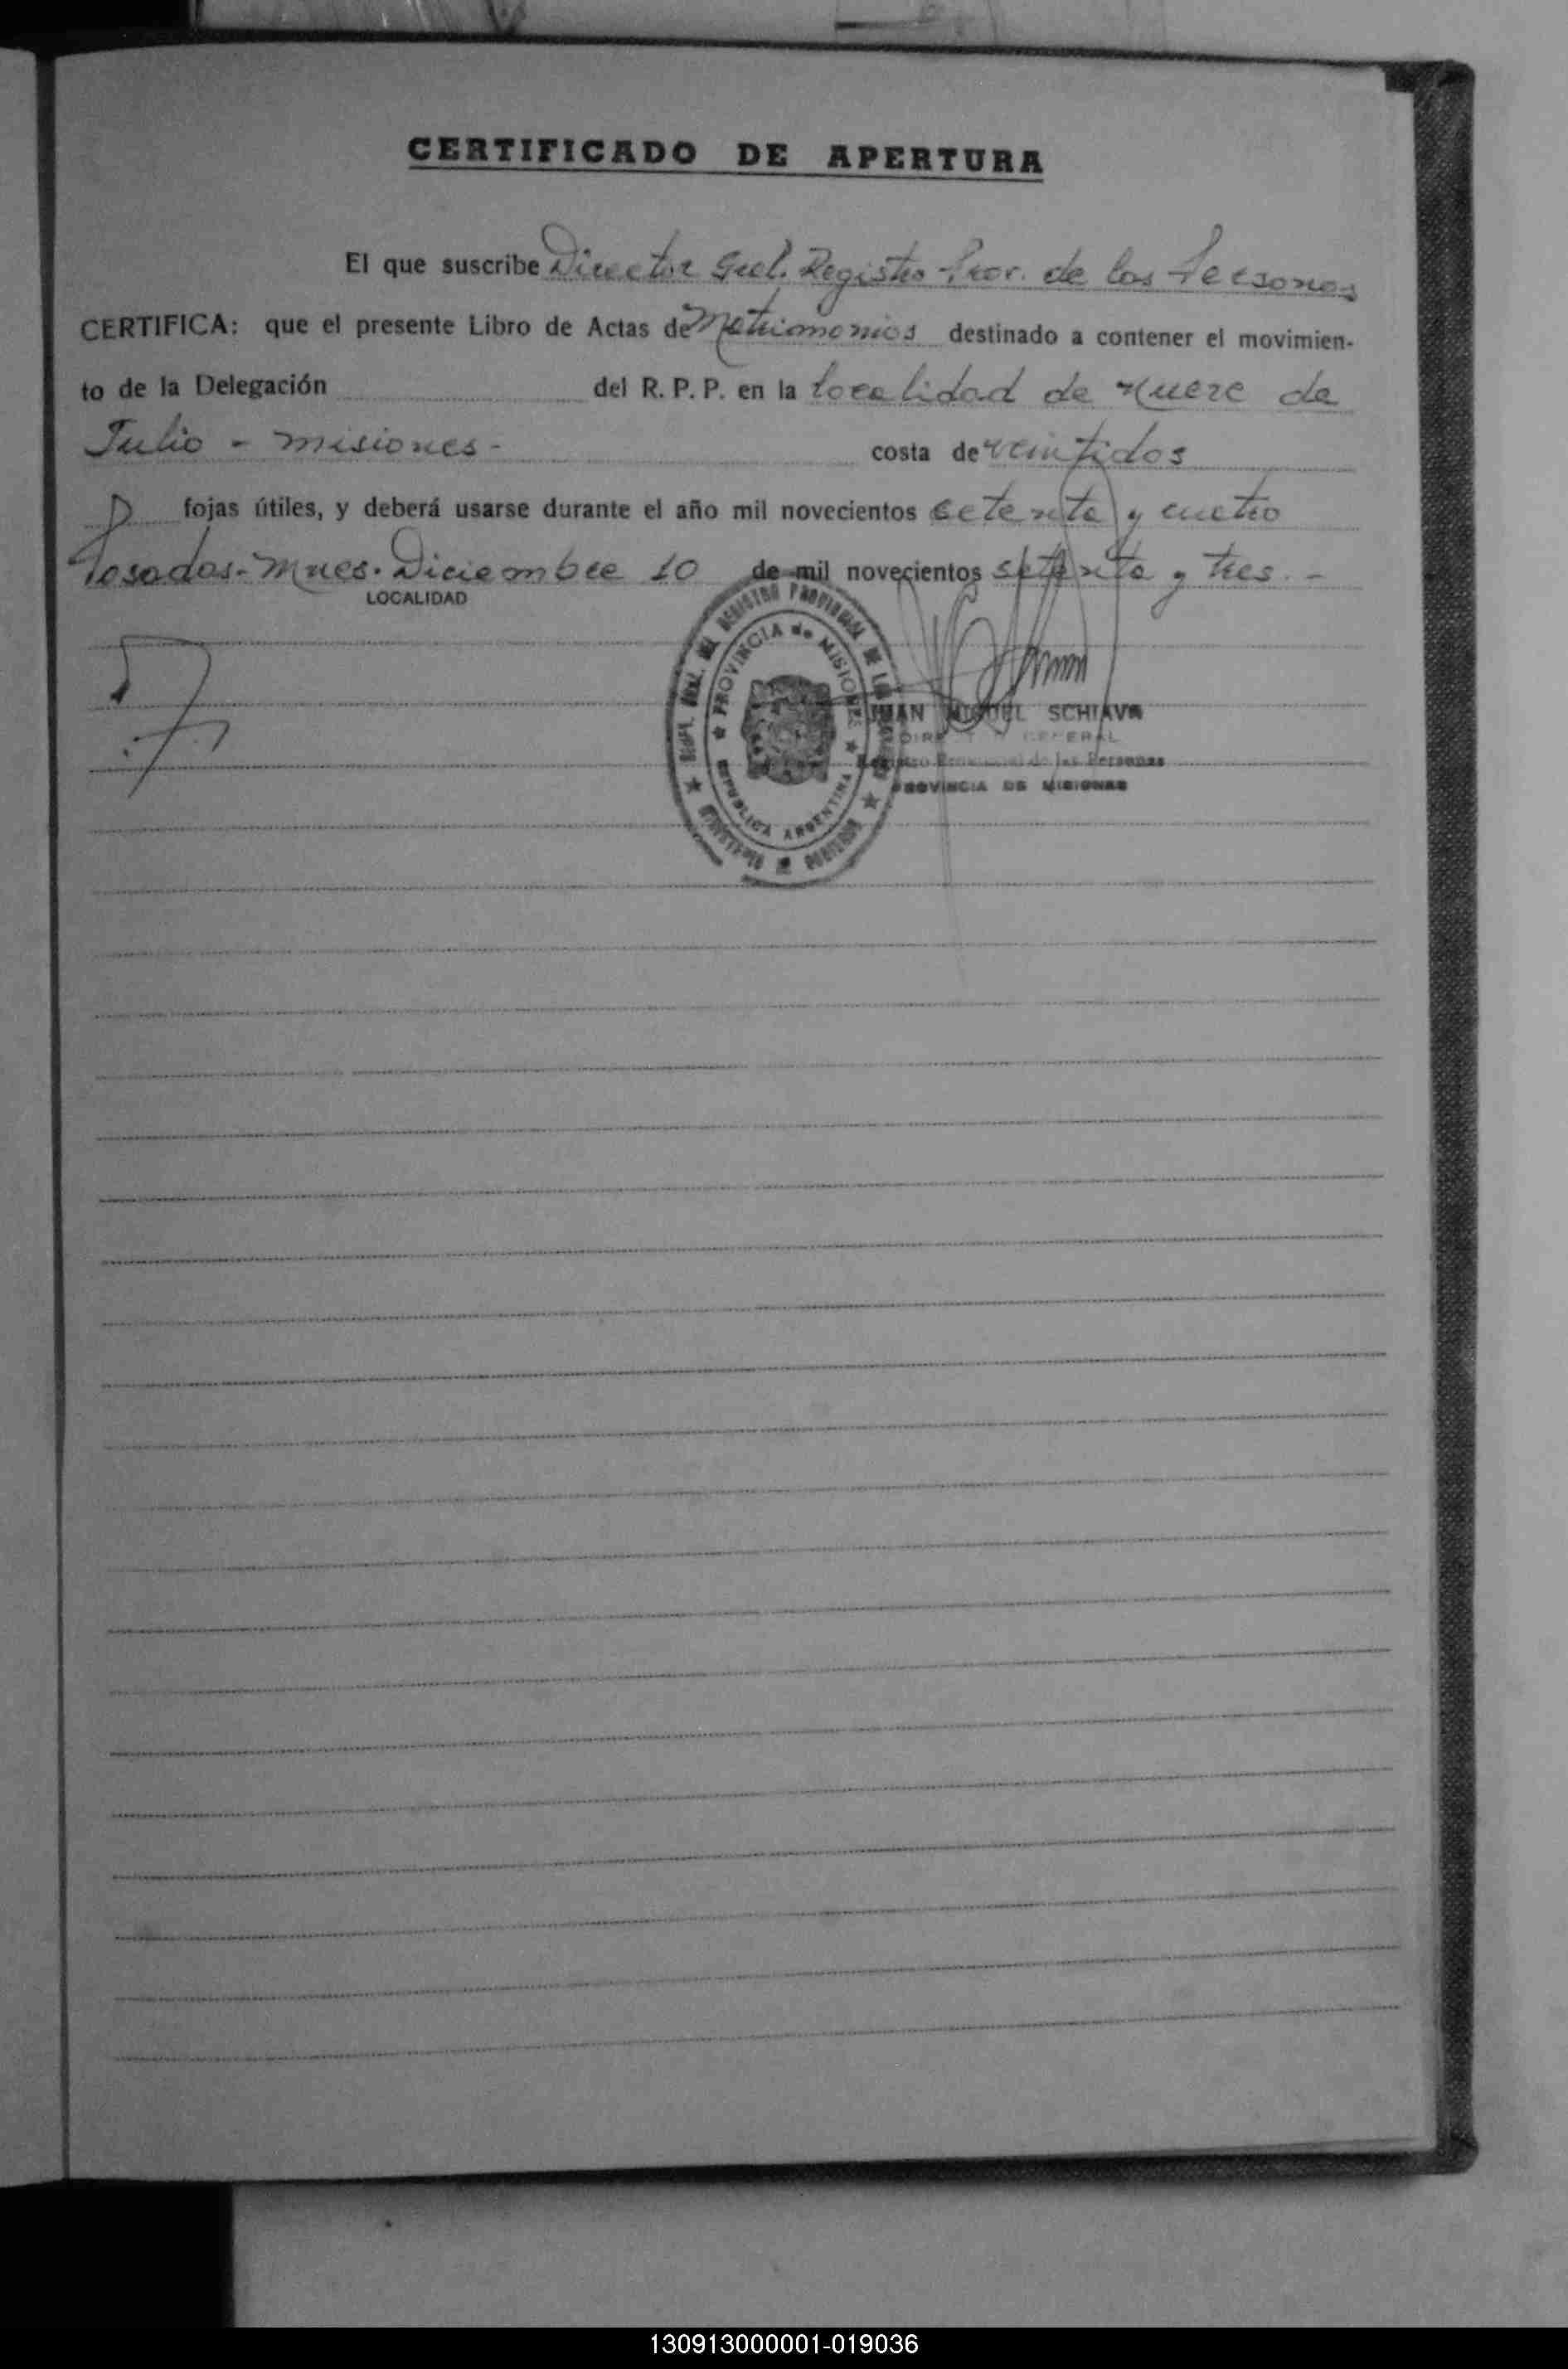 CERTIFICADO DE APERTURA
El que suscribe Director Gral. Registro Prov. de las Personas
CERTIFICA: que el presente Libro de Actas de Matrimonios destinado a contener el movimien-
to de la Delegación del R. P. P. en la localidad de Nueve de
Julio - Misiones -
costa de veintidos
fojas útiles, y deberá usarse durante el año mil novecientos setenta y cuatro
Posadas - Mnes. Diciembre 10 de mil novecientos setenta y tres. -
LOCALIDAD
REGISTRO PROVINCIAL DE LAS
PROVINCIA de MISIONES
REPUBLICA ARGENTINA
MINISTERIO DE GOBIERNO
JUAN MIGUEL SCHIAVO
DIRECTOR GENERAL
Registro Provincial de las Personas
PROVINCIA DE MISIONES
130913000001-019036